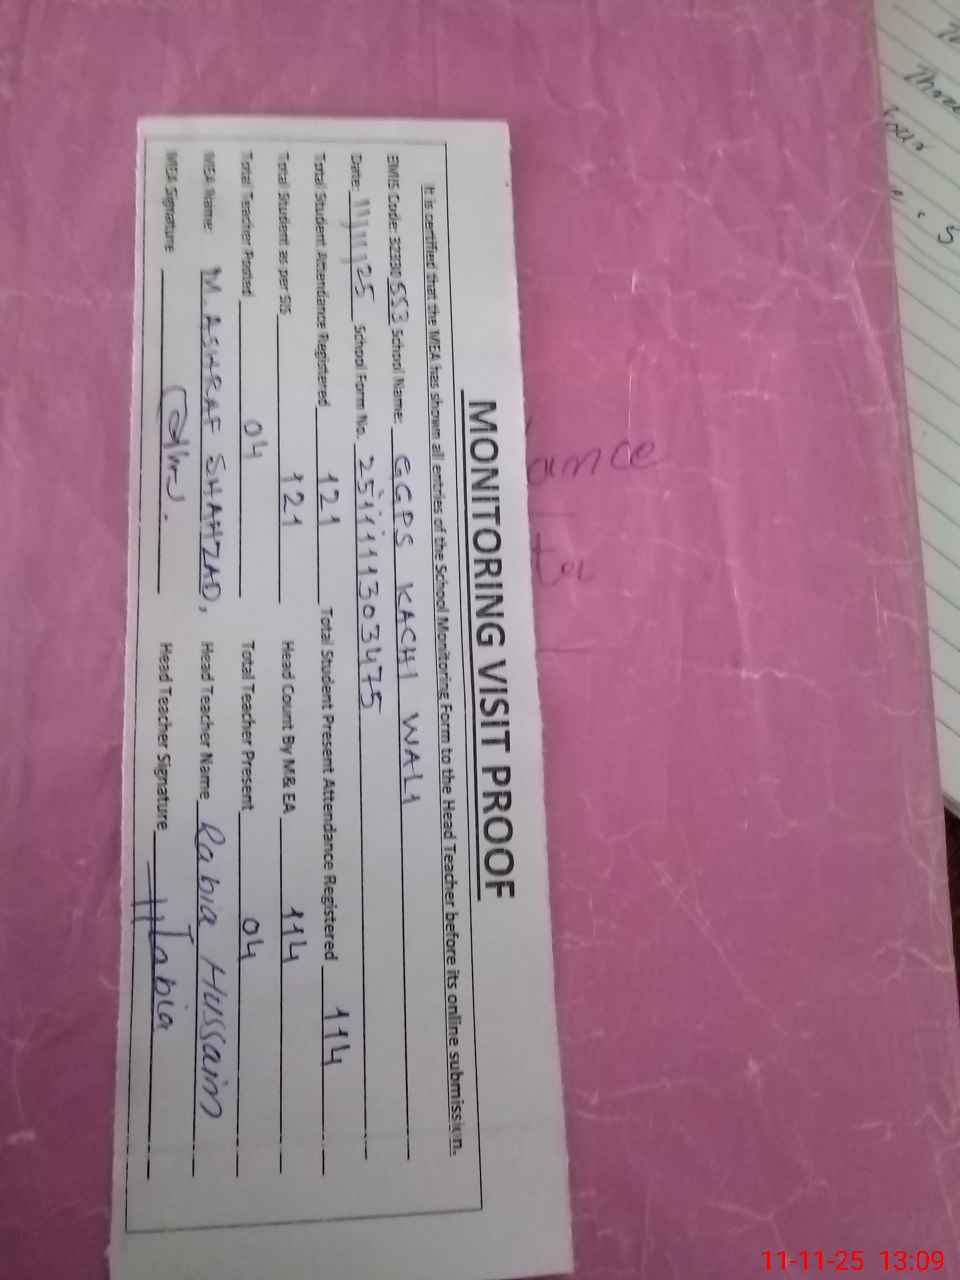 MONITORING VISIT PROOF
It is certified that the MEA has shown all entries of the School Monitoring Form to the Head Teacher before its online submission.
EMIS Code: 32330553 School Name: GGPS KACHI WALI
Date: 11/11/25 School Form No. 251111303475
Total Student Attendance Registered 121 Total Student Present Attendance Registered 114
Total Student as per SIS 121 Head Count By M& EA 114
Total Teacher Posted 04 Total Teacher Present 04
MEA Name: M. ASHRAF SHAHZAD, Head Teacher Name Rabia Hussain
MEA Signature Head Teacher Signature
ance
Three
four
5
11-11-25 13:09